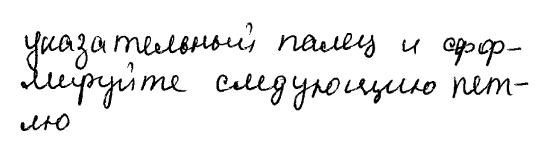 указательный палец и сфор-
мируйте следующую пет-
лю